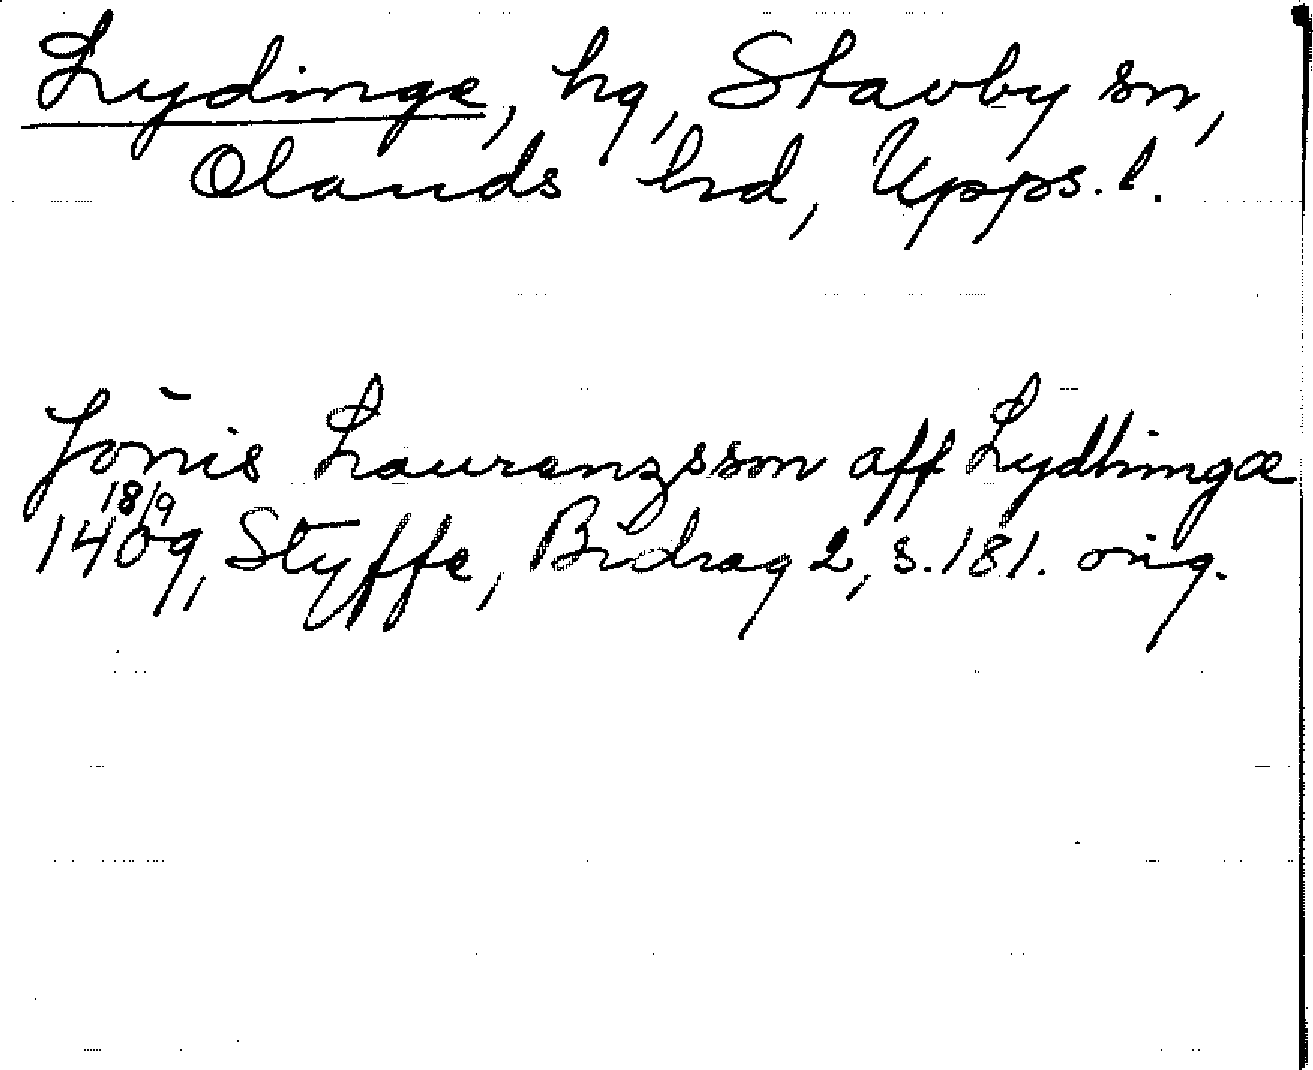 Lydinge, hg, Stavby sn,
Olands hd, Upps. l.
Jönis Lauranzsson aff Lydhingæ
18/9
1409, Styffe, Bidrag 2, s. 181. orig.